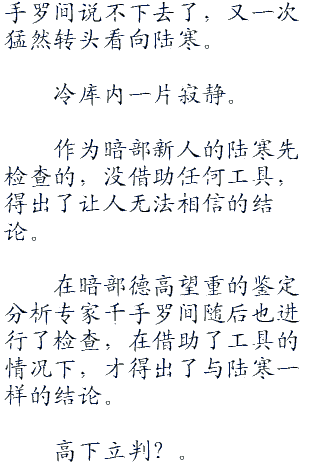 手罗间说不下去了，又一次
猛然转头看向陆寒。
冷库内一片寂静。
作为暗部新人的陆寒先
检查的，没借助任何工具，
得出了让人无法相信的结
论。
在暗部德高望重的鉴定
分析专家千手罗间随后也进
行了检查，在借助了工具的
情况下，才得出了与陆寒一
样的结论。
高下立判？。